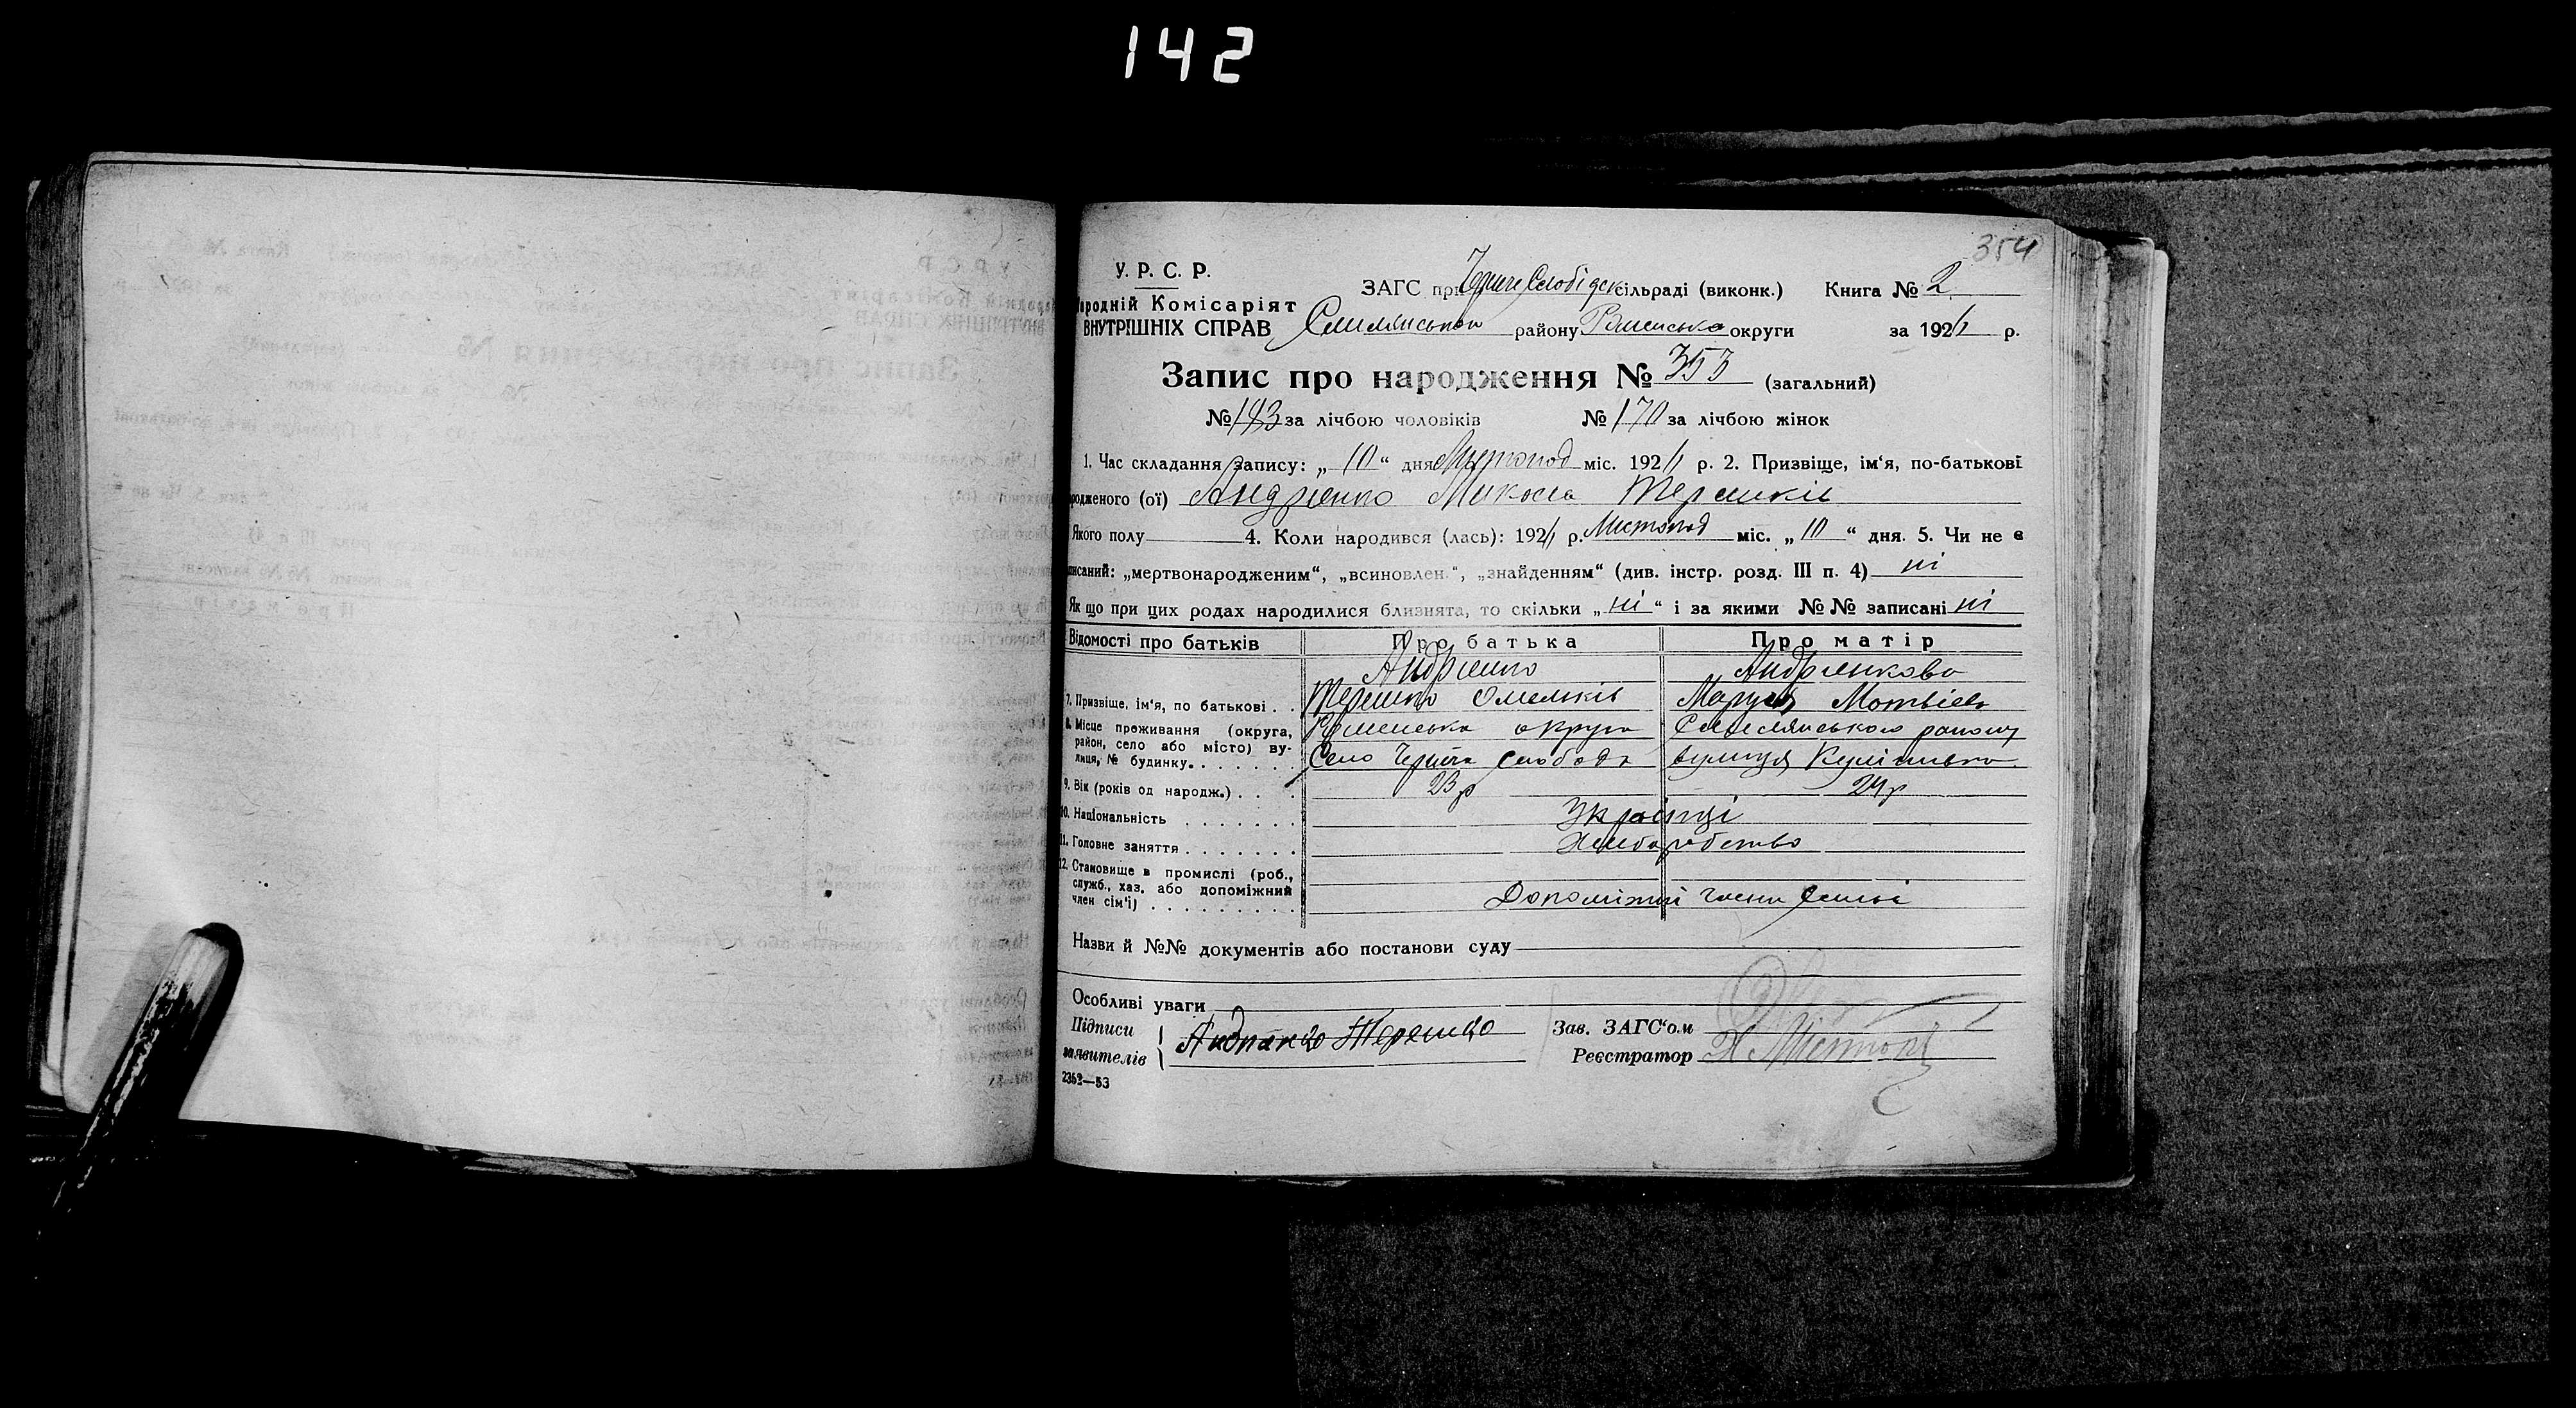 142
354
У. Р. С. Р.
ЗАГС при Чернече Слобідск сільраді (виконк.) Книга № 2
ародній Комісаріят
ВНУТРІШНІХ СПРАВ Смілянськом району Роменська округи за 192 р.
Запис про народження № 353 (загальний)
№ 183 за лічбою чоловіків № 170 за лічбою жінок
1. Час складання запису: „ 10 “ дня Листопад міс. 192 р. 2. Призвіще, ім‘я, по-батькові
родженого (ої) Андрієнко Микола Терешків
Якого полу 4. Коли народився (лась): 192 р. Листопад міс. „ 10 “ дня. 5. Чи не є
писаний: „мертвонародженим“, „всиновлен.“, „знайденням“ (див. інстр. розд. III п. 4) ні
Як що при цих родах народилися близнята, то скільки „ ні “ і за якими №№ записані ні
Відомості про батьків Про батька Про матір
Андрієнко Андрієнкова
7. Призвіще, ім‘я, по батькові . . Терешко Омельків Маруся Мотвієва
8. Місце проживання (округа, Роменська округа Смілянського району
район, село або місто) ву-
лиця, № будинку. . . . . . . Село Черніча Слобода вулиця
9. Вік (років од народж.) . . . 23 р 24 р
10. Національність . . . . . . . Українці
11. Головне заняття . . . . . . . Хліборобство
12. Становище в промислі (роб.,
служб., хаз. або допоміжний
член сім‘ї) . . . . . . . . . Допоміжні члени семьї
Назви й №№ документів або постанови суду
Особливі уваги
Підписи Андрієнко Терешко Зав. ЗАГС‘ом
заявителів Реєстратор
2362—53